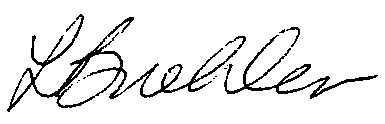 L Buehler